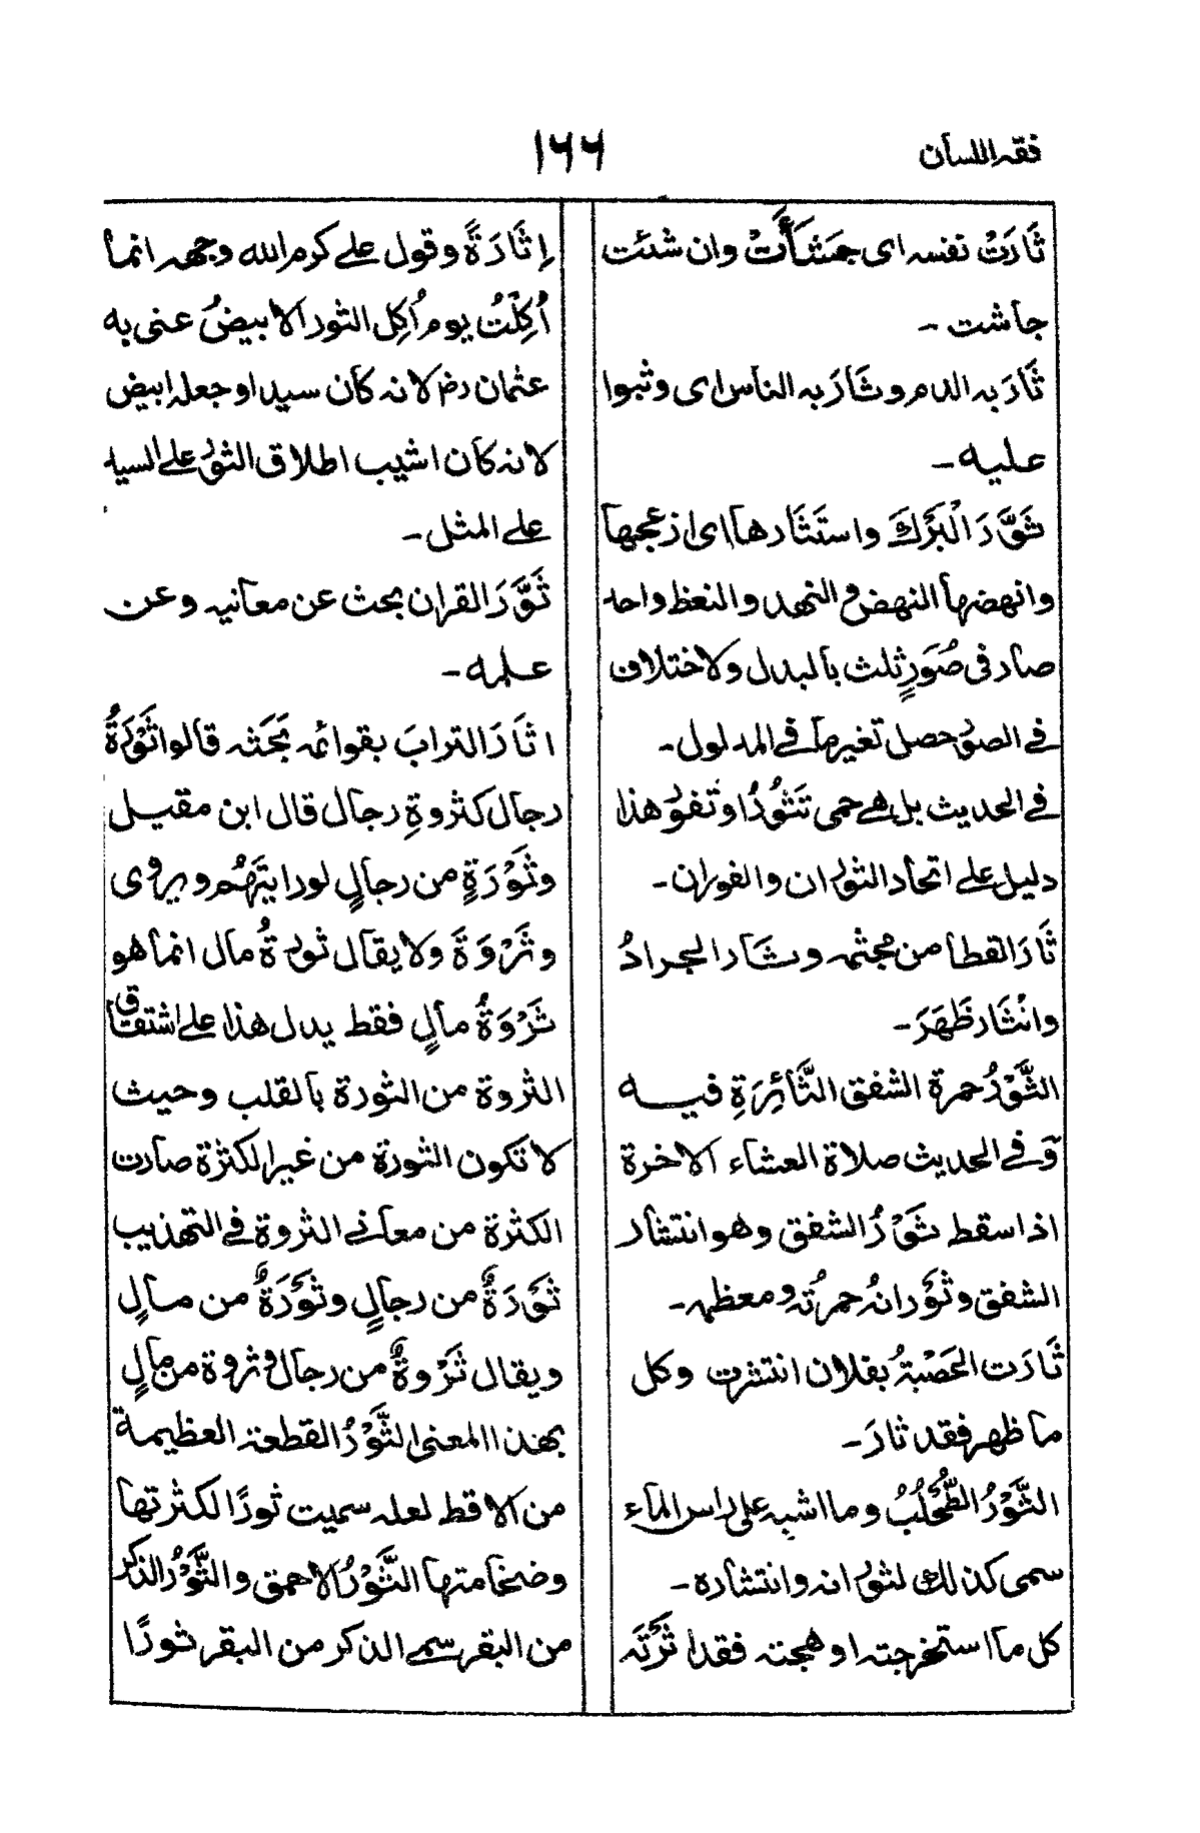 فقه اللسان
١٦٦
ثَارَتْ نفسه اى جَشَأَتْ وان شئت
جاشت -
ثَارَ به الدم و ثَارَ به الناس اى وثبوا
عليه -
ثَوَّرَ الْبَرْكَ واستَثَارها اى ازعجها
وانهضها النهض و النهد و النعظ واحد
صار فى صُوَرٍ ثلث بالبدل ولاختلاف
فى الصور حصل تغير ما فى المدلول -
فى الحديث بل هى حمى تَثُوْرُ او تفور هذا
دليل على اتحاد الثوران والفوران -
ثَارَ القطا من مجثمه وثار الجرادُ
وانْثَار ظَهَرَ -
الثَّوْرُ حمرة الشفق الثَّائِرَةِ فيه
وَفى الحديث صلاة العشاء الاخرة
اذا سقط ثَوْرُ الشفق وهو انتشار
الشفق وثَوَرانُه حمرتُه ومعظمه -
ثَارَت الحَصْبَةُ بفلان انتشرت وكل
ما ظهر فقد ثارَ -
الثَّوْرُ الطُّحْلُبُ وما اشبه على راس الماء
سمى كذلك لثورانه وانتشاره -
كل ما استخرجته او هجته فقد اثَرْتَه
اِثَارَةً وقول على كرم الله وجهه انما
اُكِلْتُ يوم اُكِل الثور الابيضُ عنى به
عثمان رض لانه كان سيدا وجعله ابيض
لانه كان اشيب اطلاق الثور على السيد
على المثل -
ثَوَّرَ القران بحث عن معانيه وعن
علمه -
اثَارَ الترابَ بقوائمه بَحَثَه قالوا ثَوْرَةُ
رجال كثروةِ رجال قال ابن مقبل
وثَوْرَةٍ من رجالٍ لو رايتَهُم ويروى
وثَرْوَةَ ولا يقال ثورةُ مال انما هو
ثَرْوَةُ مالٍ فقط يدل هذا على اشتقاق
الثروة من الثورة بالقلب وحيث
لا تكون الثورة من غير الكثرة صارت
الكثرة من معانى الثروة فى التهذيب
ثَوْرَةٌ من رجالٍ وثَوْرَةٌ من مالٍ
ويقال ثَرْوةٌ من رجال وثروة من مالٍ
بهذا المعنى الثَّوْرُ القطعة العظيمة
من الاقط لعله سميت ثورًا لكثرتها
وضخامتها الثَّوْرُ الاحمق والثَّوْرُ الذكر
من البقر سمى الذكر من البقر ثورًا